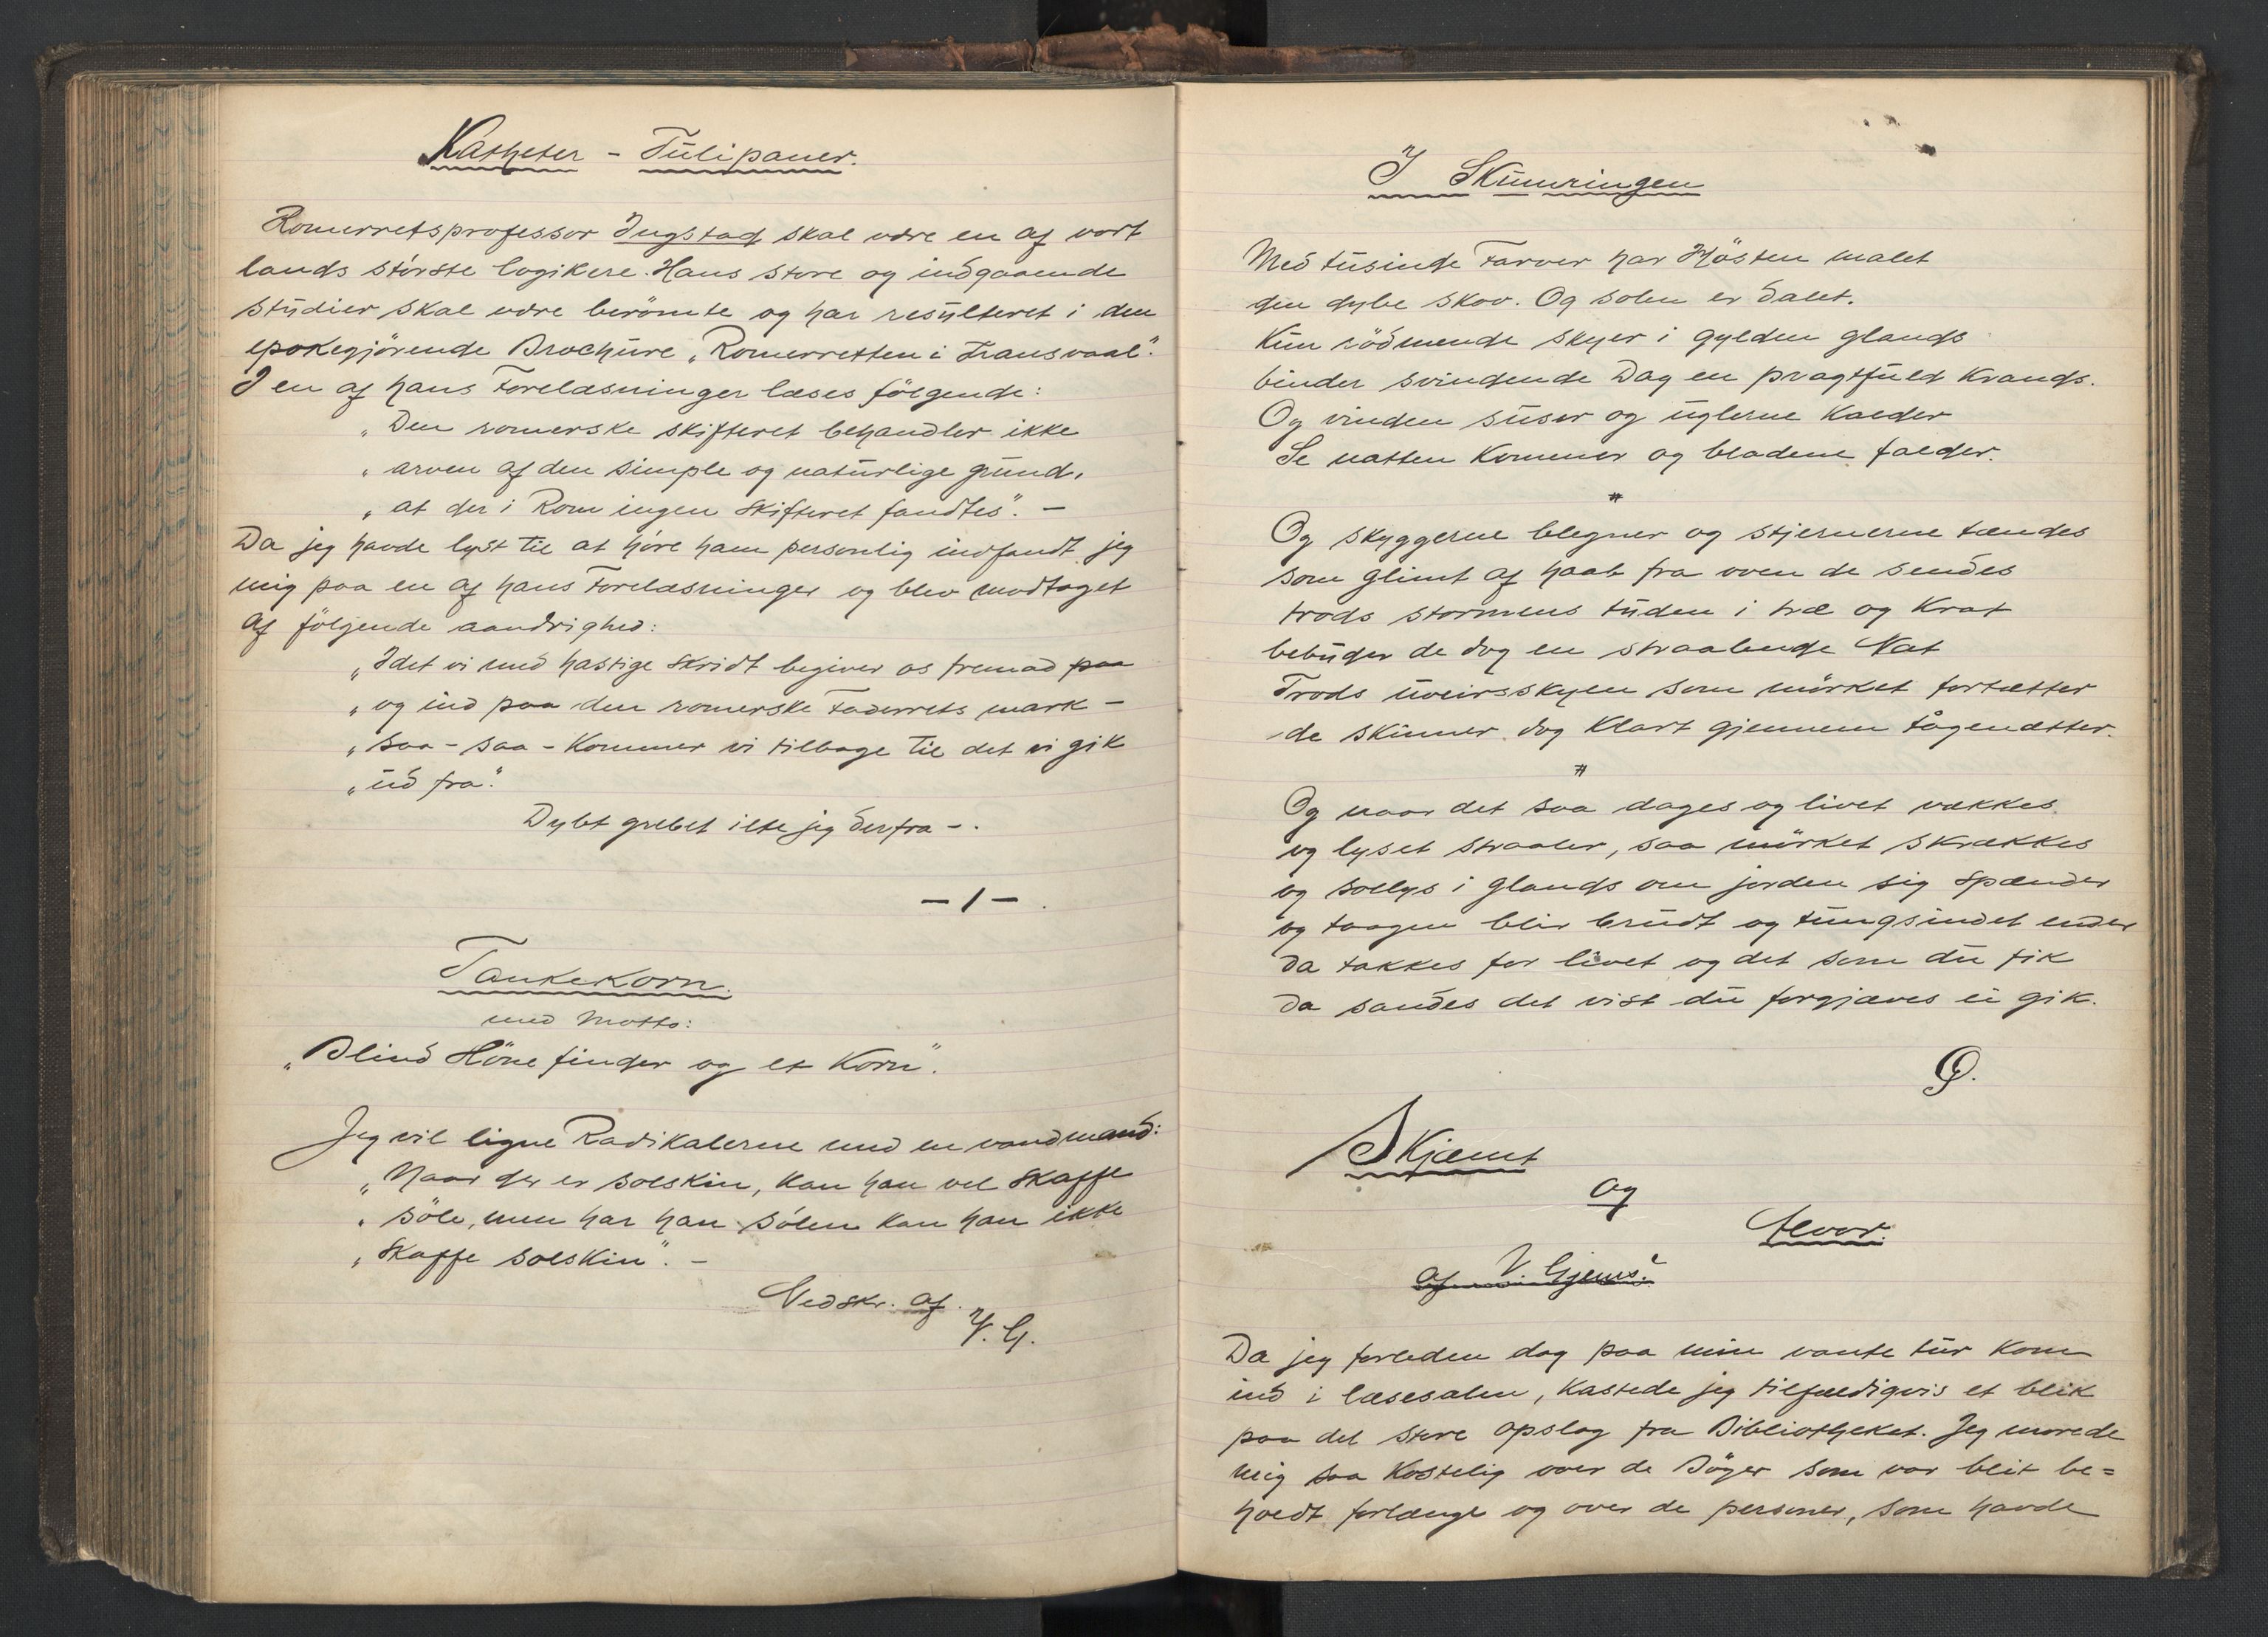 Katheter - Tulipaner.
Romerretsprofessor Ingstad skal være en af vort
lands störste logikere. Hans store og indgaaende
studier skal være berömte og har resulteret i den
epokegjörende Brochure „Romerretten i Transvaal".
I en af hans Forelæsninger læses fölgende:
„Den romerske skifteret behandler ikke
„arven af den simple og naturlige grund,
„at der i Rom ingen skifteret fandtes". –
Da jeg havde lyst til at höre ham personlig indfandt jeg
mig paa en af hans Forelæsninger og blev modtaget
af fölgende aandrighed:
„Idet vi med hastige skridt begiver os fremad paa
„og ind paa den romerske Faderrets mark –
„saa – saa – kommer vi tilbage til det vi gik
„ud fra".
Dybt grebet ilte jeg derfra –.
– 1 – .
Tankekorn.
med Motto:
„Blind Höne finder og et Korn".
Jeg vil ligne Radikalerne med en vandmand:
„Naar der er solskin, kan han vel skaffe
„söle, men har han sölen kan han ikke
„skaffe solskin". –
Nedskr. af.
V. G.
I Skumringen
Med tusinde Farver har Hösten malet
den dybe skov. Og solen er dalet.
Kun rödmende skyer i gylden glands
binder svindende Dag en pragtfuld Krands.
Og vinden suser og uglerne kalder
Se natten kommer og bladene falder.
#
Og skyggerne blegner og stjernerne tændes
som glimt af haab fra oven de sendes
trods stormens tuden i træ og krat
bebuder de dog en straalende Nat
Trods uveirsskyen som mörket fortætter
de skinner dog klart gjennem tågenætter.
#
Og naar det saa dages og livet vækkes
og lyset straaler, saa mörket skrækkes
og sollys i glands om jorden sig spænder
og taagen blir brudt og tungsindet ender
da takkes for livet og det som du fik
da sandes det vist du forgjæves ei gik.
G.
Skjæmt
og
Alvor.
af V. Gjems.
Da jeg forleden dag paa min vante tur kom
ind i læsesalen, kastede jeg tilfældigvis et blik
paa det store opslag fra Bibliotheket. Jeg morede
mig saa kostelig over de Böger som var blit be=
holdt forlænge og over de personer, som havde